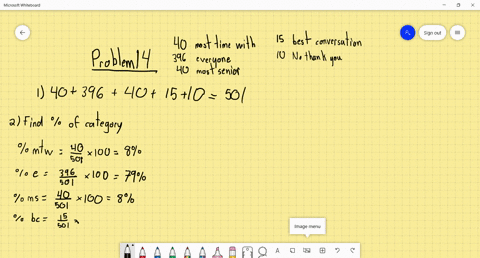 Microsoft Whiteboard
Sign out
Problem 14
40 most time with
396 everyone
40 most senior
15 best conversation
10 No thank you
1) 40 + 396 + 40 + 15 + 10 = 501
2) Find % of category
% mtw = 40/501 × 100 = 8%
% e = 396/501 × 100 = 79%
% ms = 40/501 × 100 = 8%
% bc = 15/501
Image menu